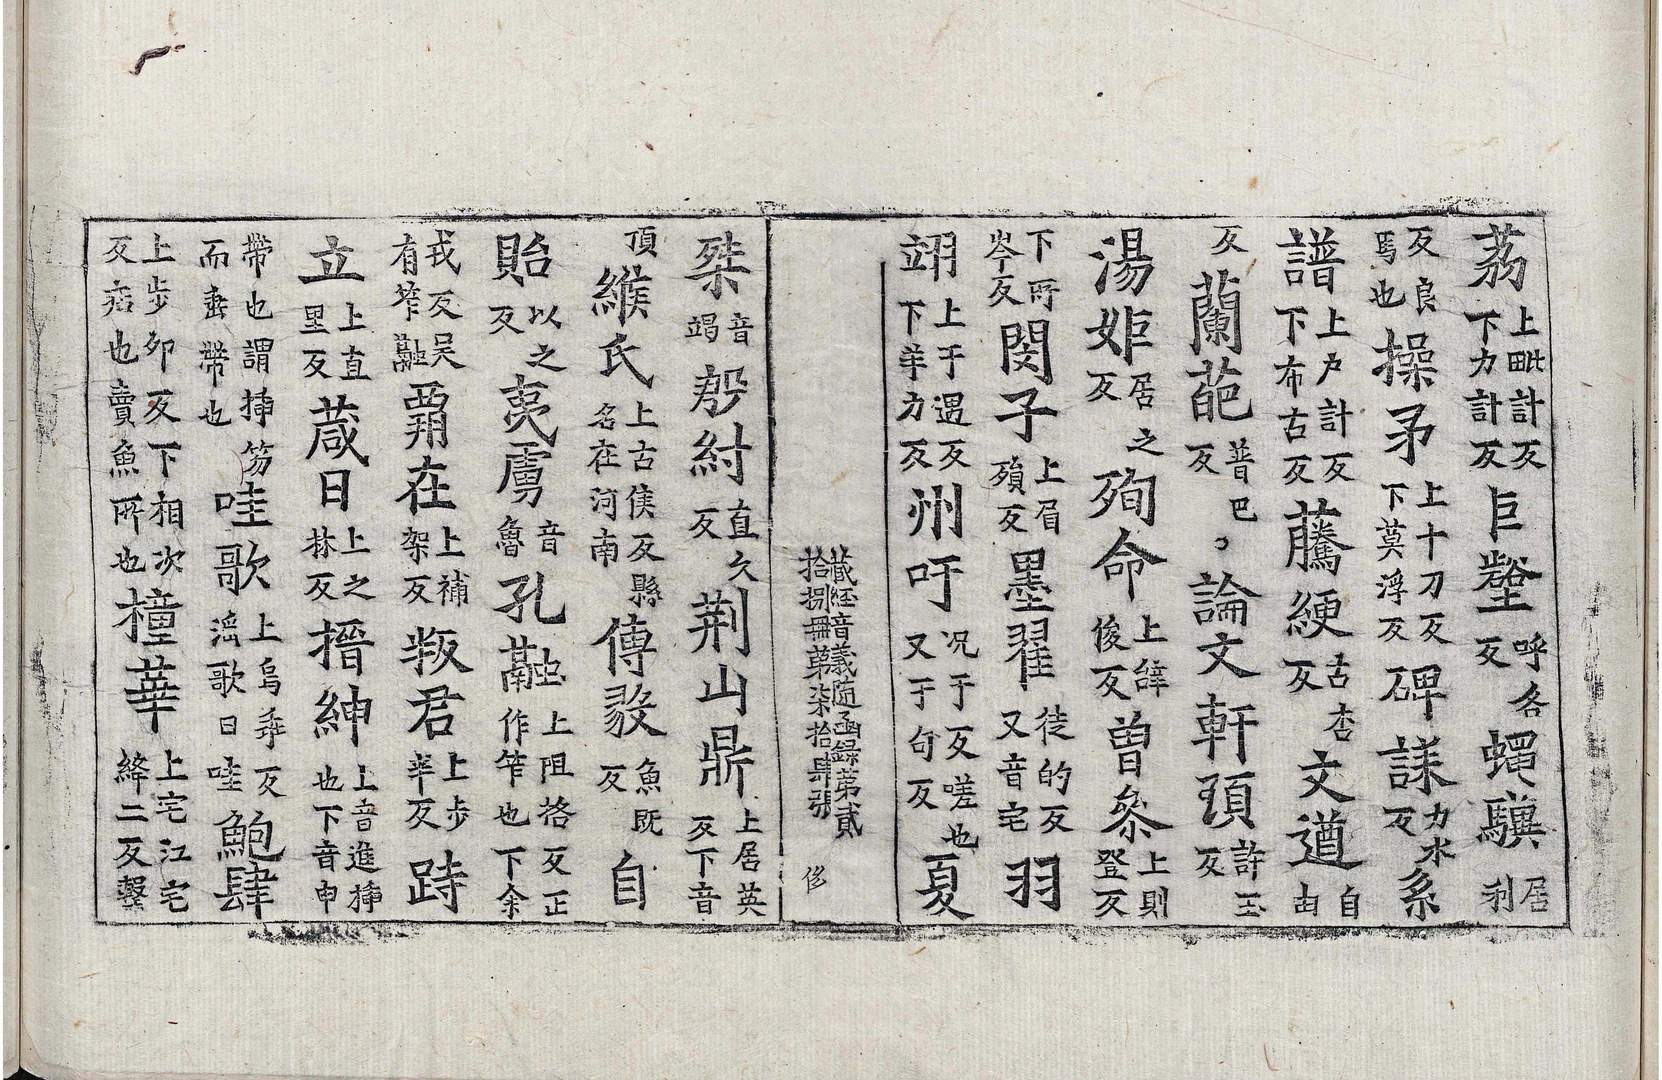 荔上毗計反下力計反巨壑呼各反蠳驥居利
反良馬也操矛上十刀反下莫浮反碑誄力水反系
譜上戶計反下布古反騰綆古杏反文遒自由
反蘭葩普巴反論文軒頊許玉反
湯姖居之反殉命上辝俊反曾叅上則登反
下所岑反閔子上眉殞反墨翟徒的反又音宅羽
翊上于遇反下羊力反州吁况于反嗟也又于句反夏
藏經音義随函録第貳拾捌冊第柒拾肆張 侈
桀音竭殷紂直久反荆山鼎上居英反下音
頂緱氏上古侯反縣名在河南傳毅魚既反自
貽以之反夷虜音魯孔融上阻格反正作笮也下余
戎反吴有笮融覇在上補架反叛君上步半反跱
立上直里反葴日上之林反搢紳上音進揷也下音申
帶也謂揷笏而垂帶也哇歌上烏乖反滛歌曰哇鮑肆
上步卯反下相次反㾑也賣魚所也橦華上宅江宅絳二反䥣